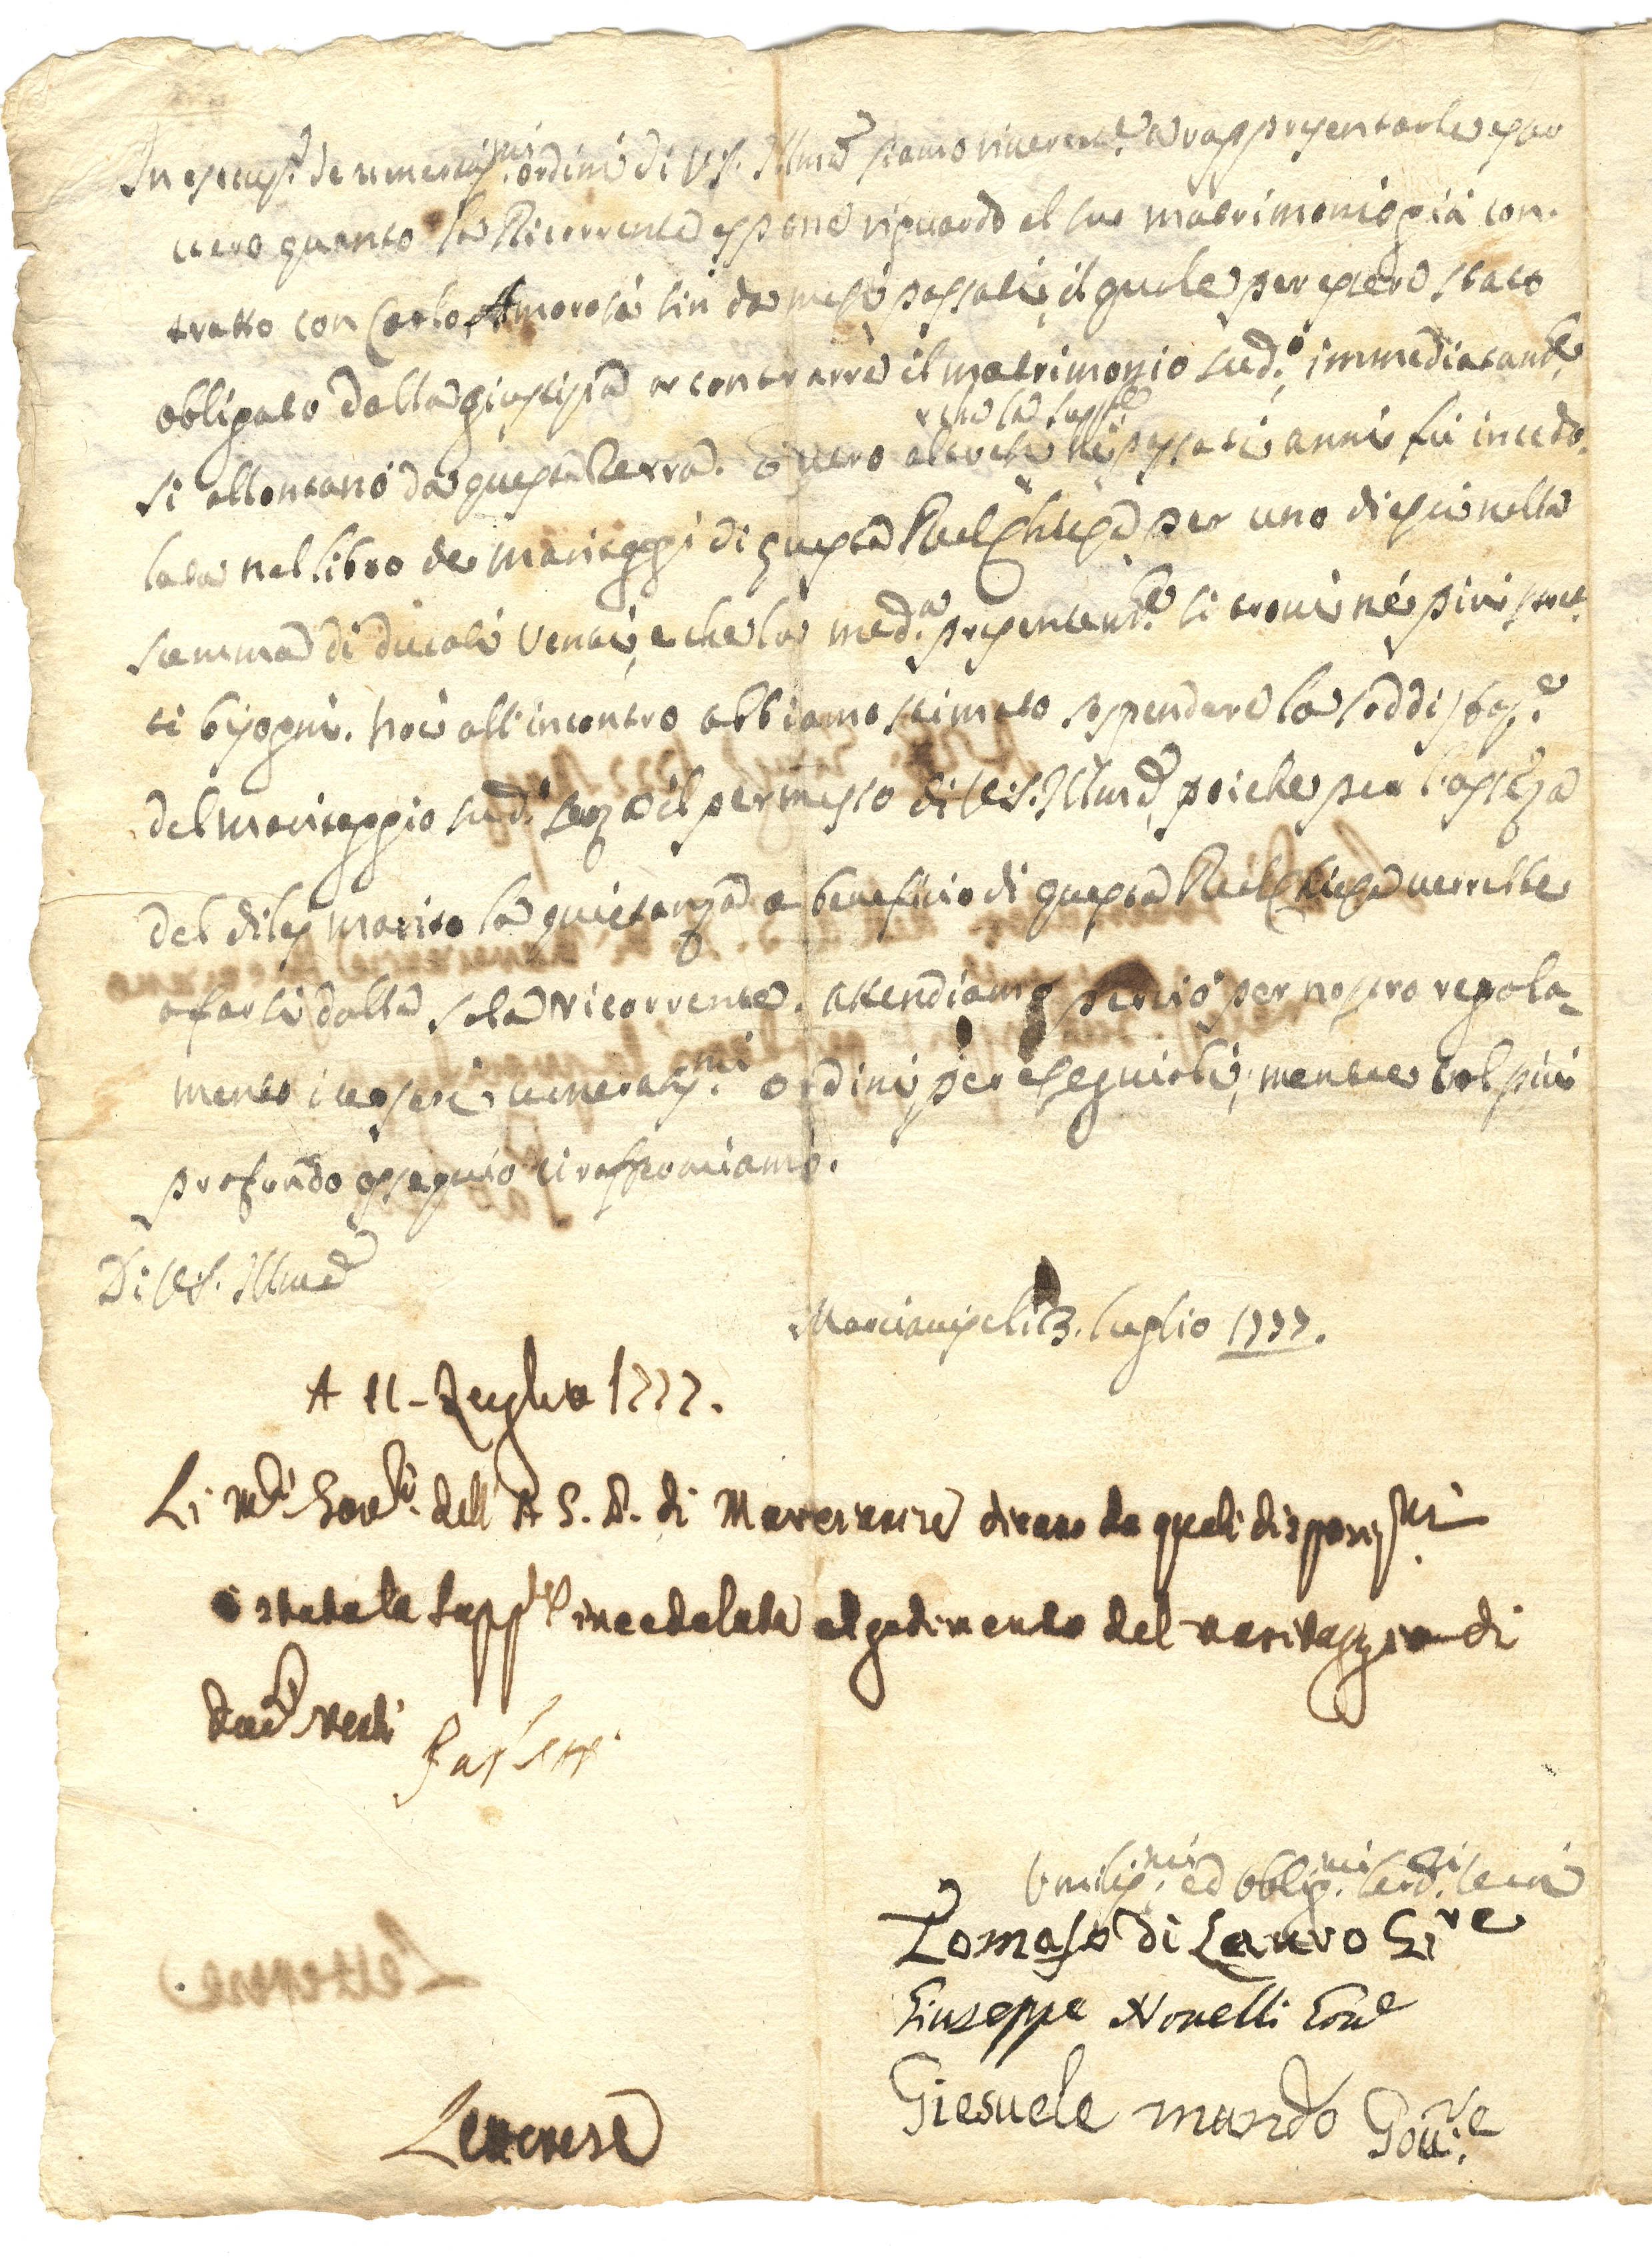 In esecuz.e de veneratis.mi ordini di V.S. Ill.ma siamo riverentem.te a rappresentarle esser
vero quanto la Ricorrente espone riguardo al suo matrimonio già con-
tratto con Carlo Amorosa sin da mesi passati, il quale per essere stato
obligato dalla giustizia a contrarre il matrimonio sud.o, immediatam.te
si allontanò da questa Terra. È vero altresì che la Supp.te ne' passati anni fù incedo-
lata nel libro de maritaggi di questa Real Chiesa per uno di essi nella
summa di ducati venti, e che la med.a presentem.te si trovi né più
ti bisogni. Noi all'incontro abbiamo stimato sospendere la soddisfaz.e
del maritaggio sud.o senza il permesso di V.S. Ill.ma, poiche per l'assenza
del di lei marito la quietanza a beneficio di questa Real Chiesa verrebbe
a farsi dalla sola ricorrente. Attendiamo perciò per nostro regola-
mento i vostri veneratis.mi ordini per eseguirli, mentre col più
profondo ossequio ci raffermiamo.
Di V.S. Ill.ma
Marcianisi li 3. luglio 1777.
A 11 - Luglio 1777.
Li M.ci Gov.ri dell' A. G. P. di Marcianise dicano da quali disposiz.ni
è stata la Supp.te incedolata al godimento del maritaggio di
duc.i venti
Umilis.mi ed obblig.mi serd.ri veri
Tomaso di Lauro G.re
Giuseppe Novelli Gov.e
Giesuele mundo Gov.re
Letterese
Letterese